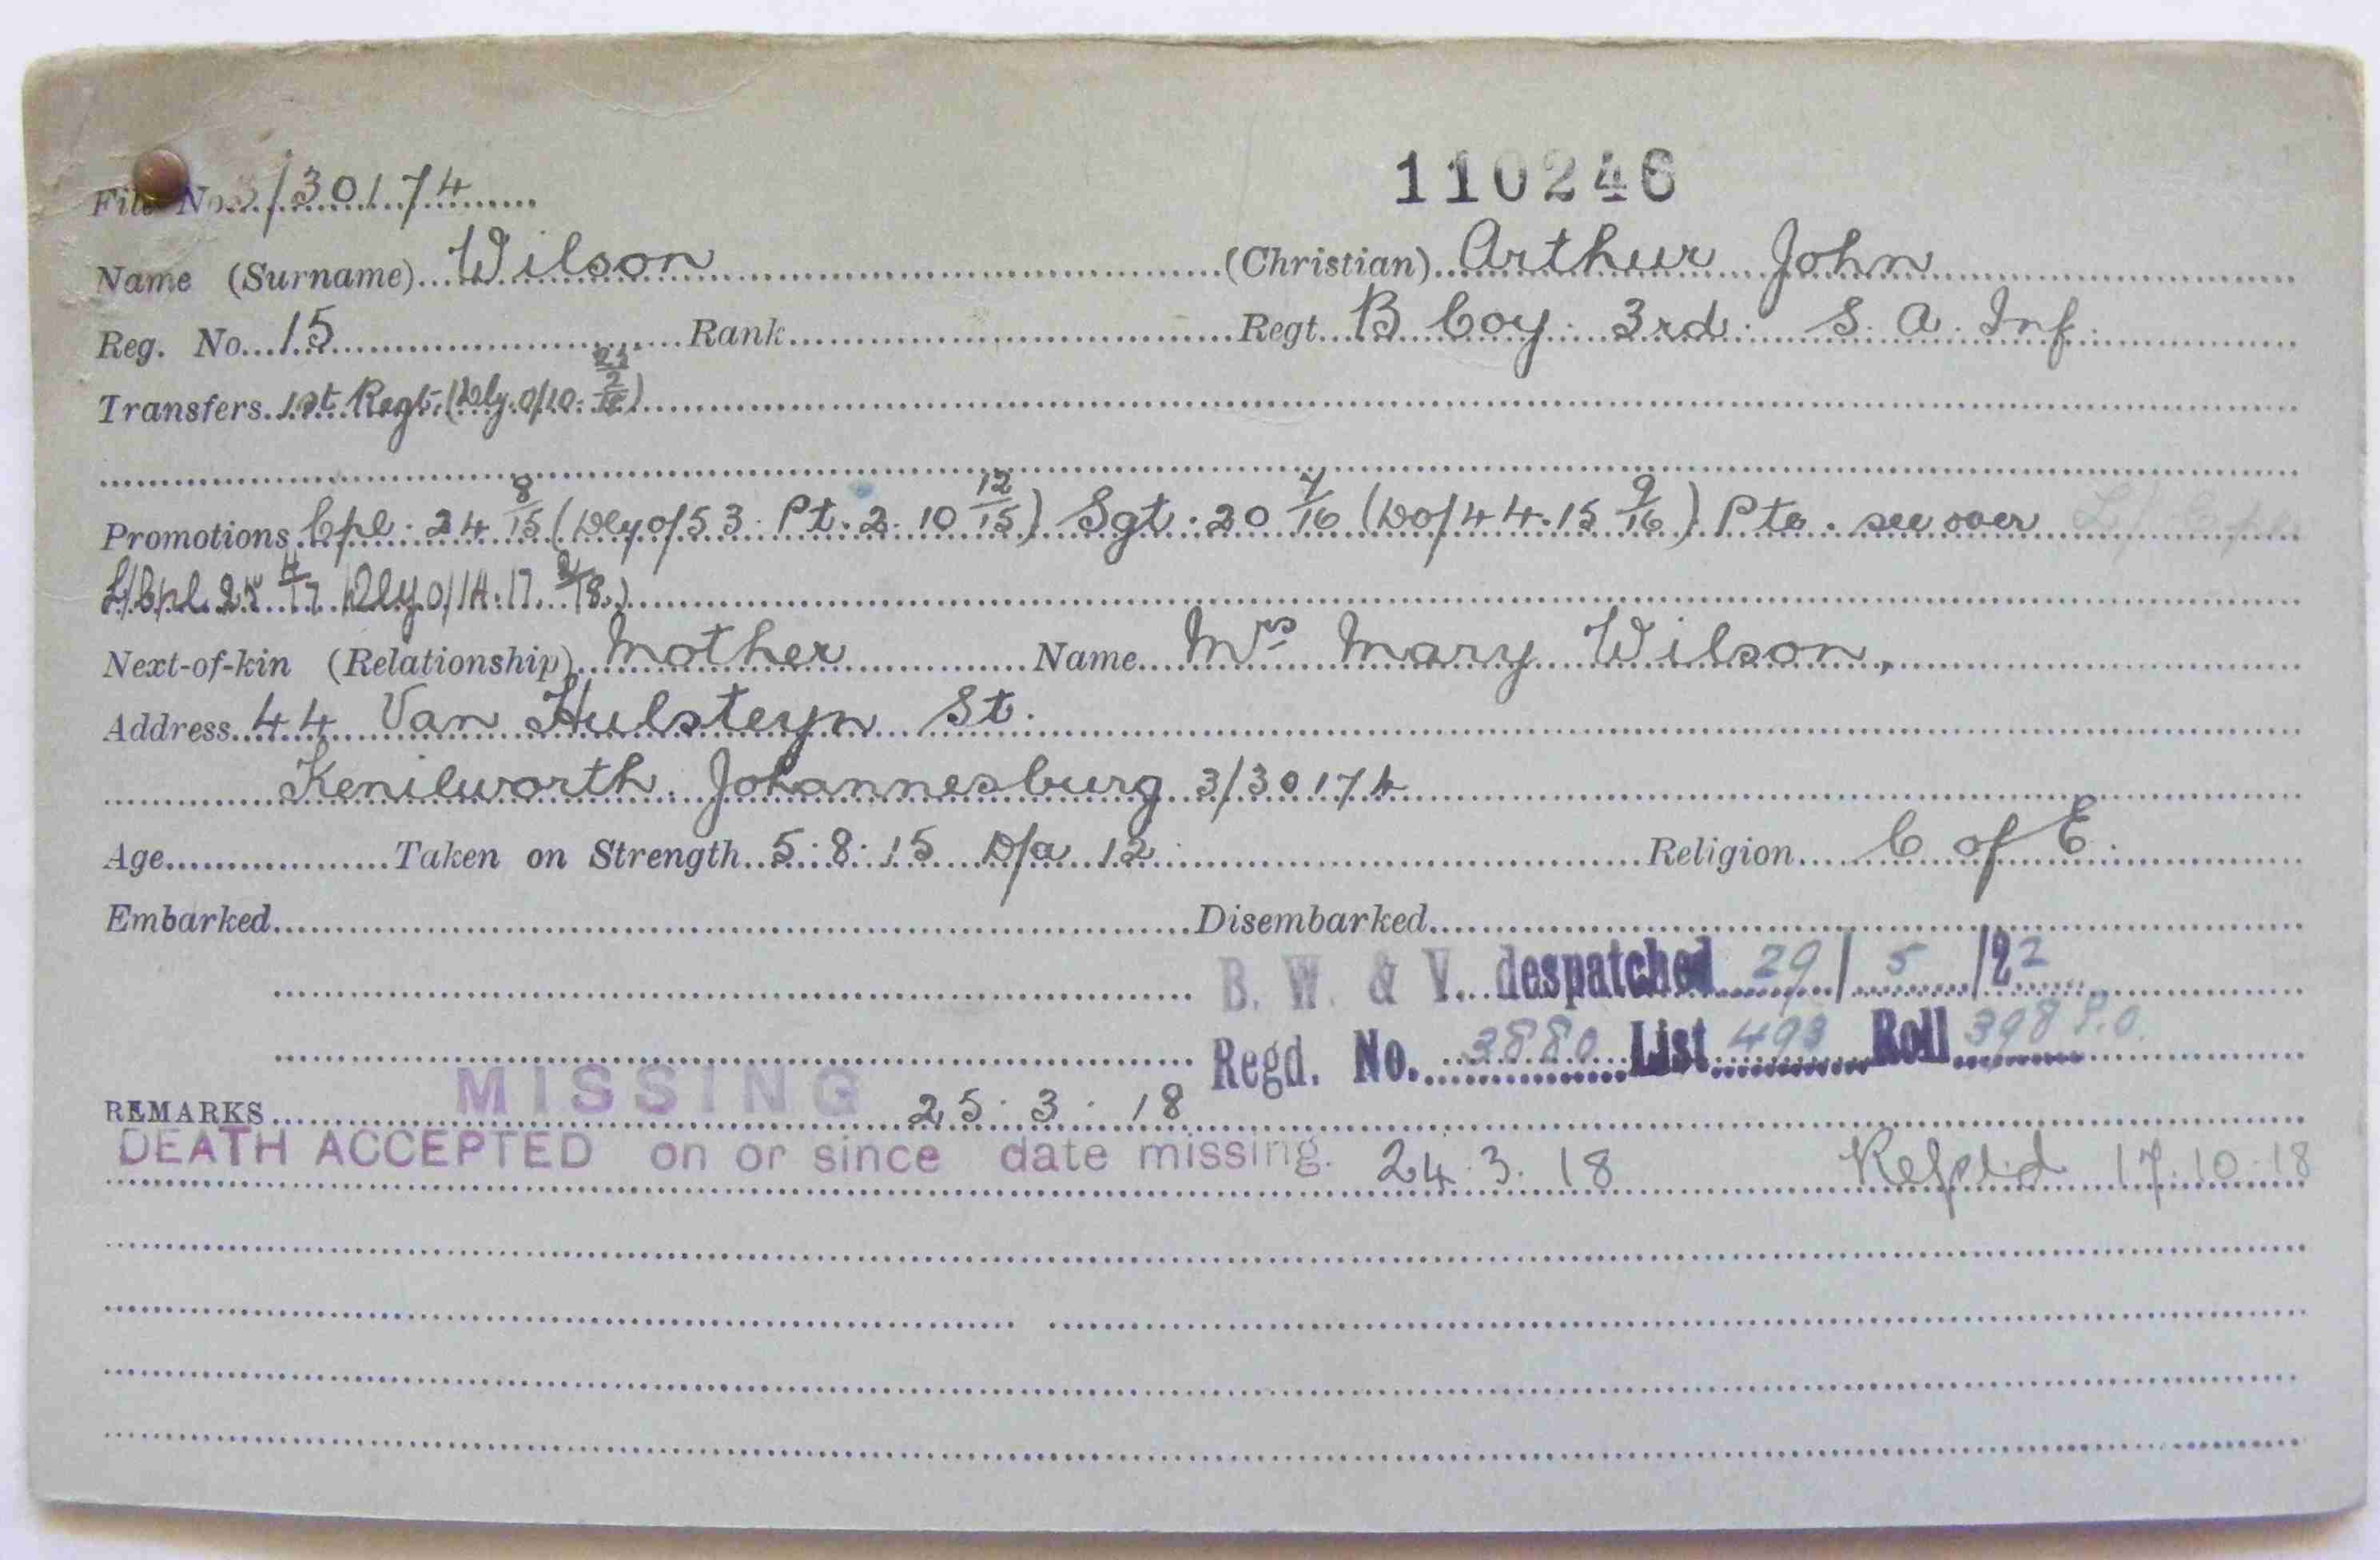 110246
File No. 3/30174
Name (Surname) Wilson (Christian) Arthur John
Reg. No. 15 Rank Regt. B Coy. 3rd. S. A. Inf.
Transfers. 1st Regt. (Dly o/10.
Promotions. Cpl. 24 8/15 (Dly o/53. Pt. 2. 10 12/15) Sgt. 20 7/16 (Do/44. 15 9/16) Pte. see over
L/Cpl. 25 4/17 (Dly o/14. 17. 2/18.)
Next-of-kin (Relationship) Mother Name Mrs Mary Wilson,
Address 44 Van Hulsteyn St.
Kenilworth. Johannesburg 3/30174
Age Taken on Strength 5.8.15 D/a 12. Religion C of E.
Embarked Disembarked
B. W. & V. despatched 29/5/22
Regd. No. 3880 List 493 Roll 398 P.O.
REMARKS MISSING 25.3.18
DEATH ACCEPTED on or since date missing. 24.3.18 17.10.18